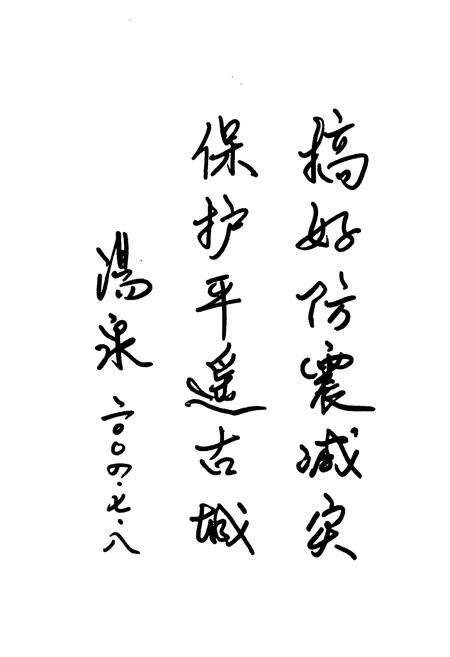 搞好防震减灾
保护平遥古城
汤泉 二〇〇六.七.八